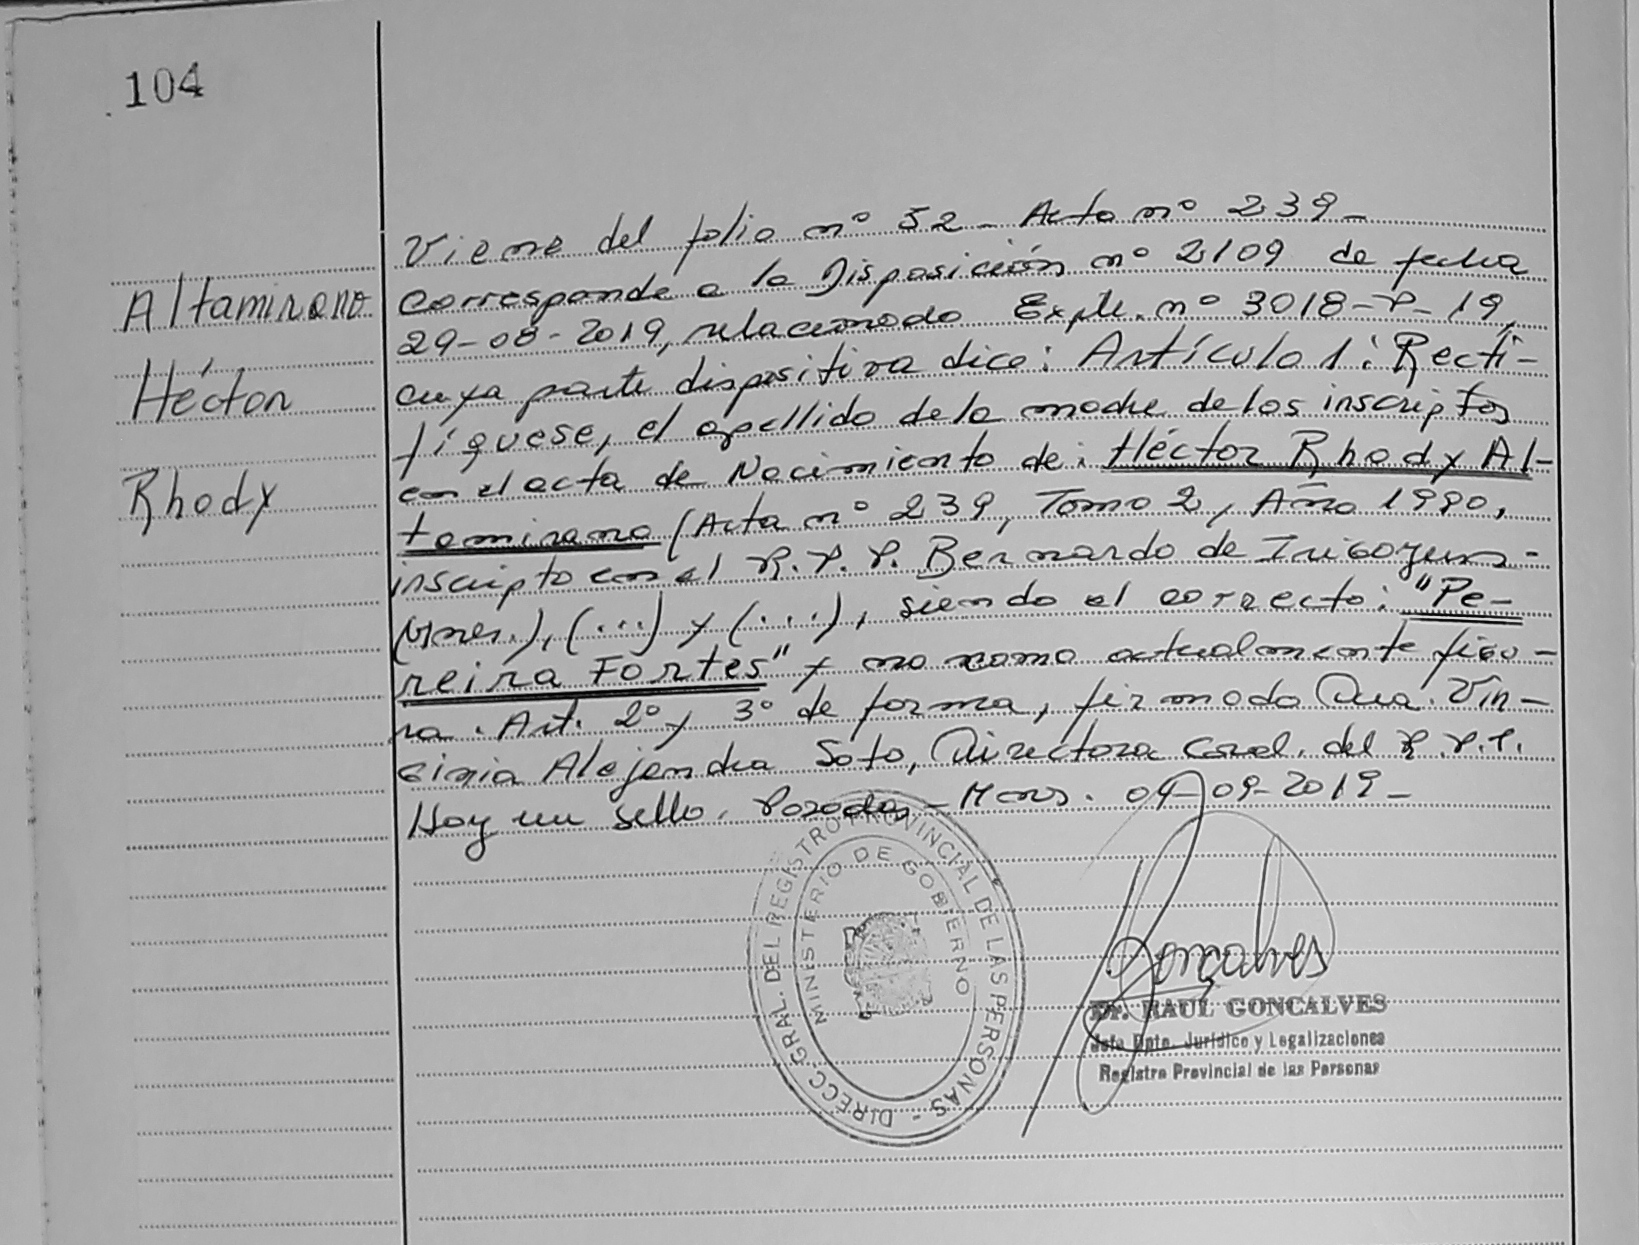 104
Viene del folio nº 52 - Acta nº 239 -
Altamirano
Héctor
Rhody
Corresponde a la Disposición nº 2109 de fecha
29-08-2019, relacionado Expte. nº 3018-P-19,
cuya parte dispositiva dice: Artículo 1: Recti-
fíquese, el apellido de la madre de los inscriptos
en el acta de Nacimiento de: Héctor Rhody Al-
tamirano (Acta nº 239, Tomo 2, Año 1990,
inscripto en el R.P.P. Bernardo de Irigoyen -
Mnes.), (...) y (...), siendo el correcto: "Pe-
reira Fortes" y no como actualmente figu-
ra. Art. 2º y 3º de forma, firmado Dra. Vir-
ginia Alejandra Soto, Directora Gral. del R.P.P.
Hay un sello. Posadas - Mnes. 04-09-2019 -
DIRECC. GRAL. DEL REGISTRO PROVINCIAL DE LAS PERSONAS -
MINISTERIO DE GOBIERNO
Gonçalves
Dr. RAUL GONCALVES
Jefe Dpto. Jurídico y Legalizaciones
Registro Provincial de las Personas